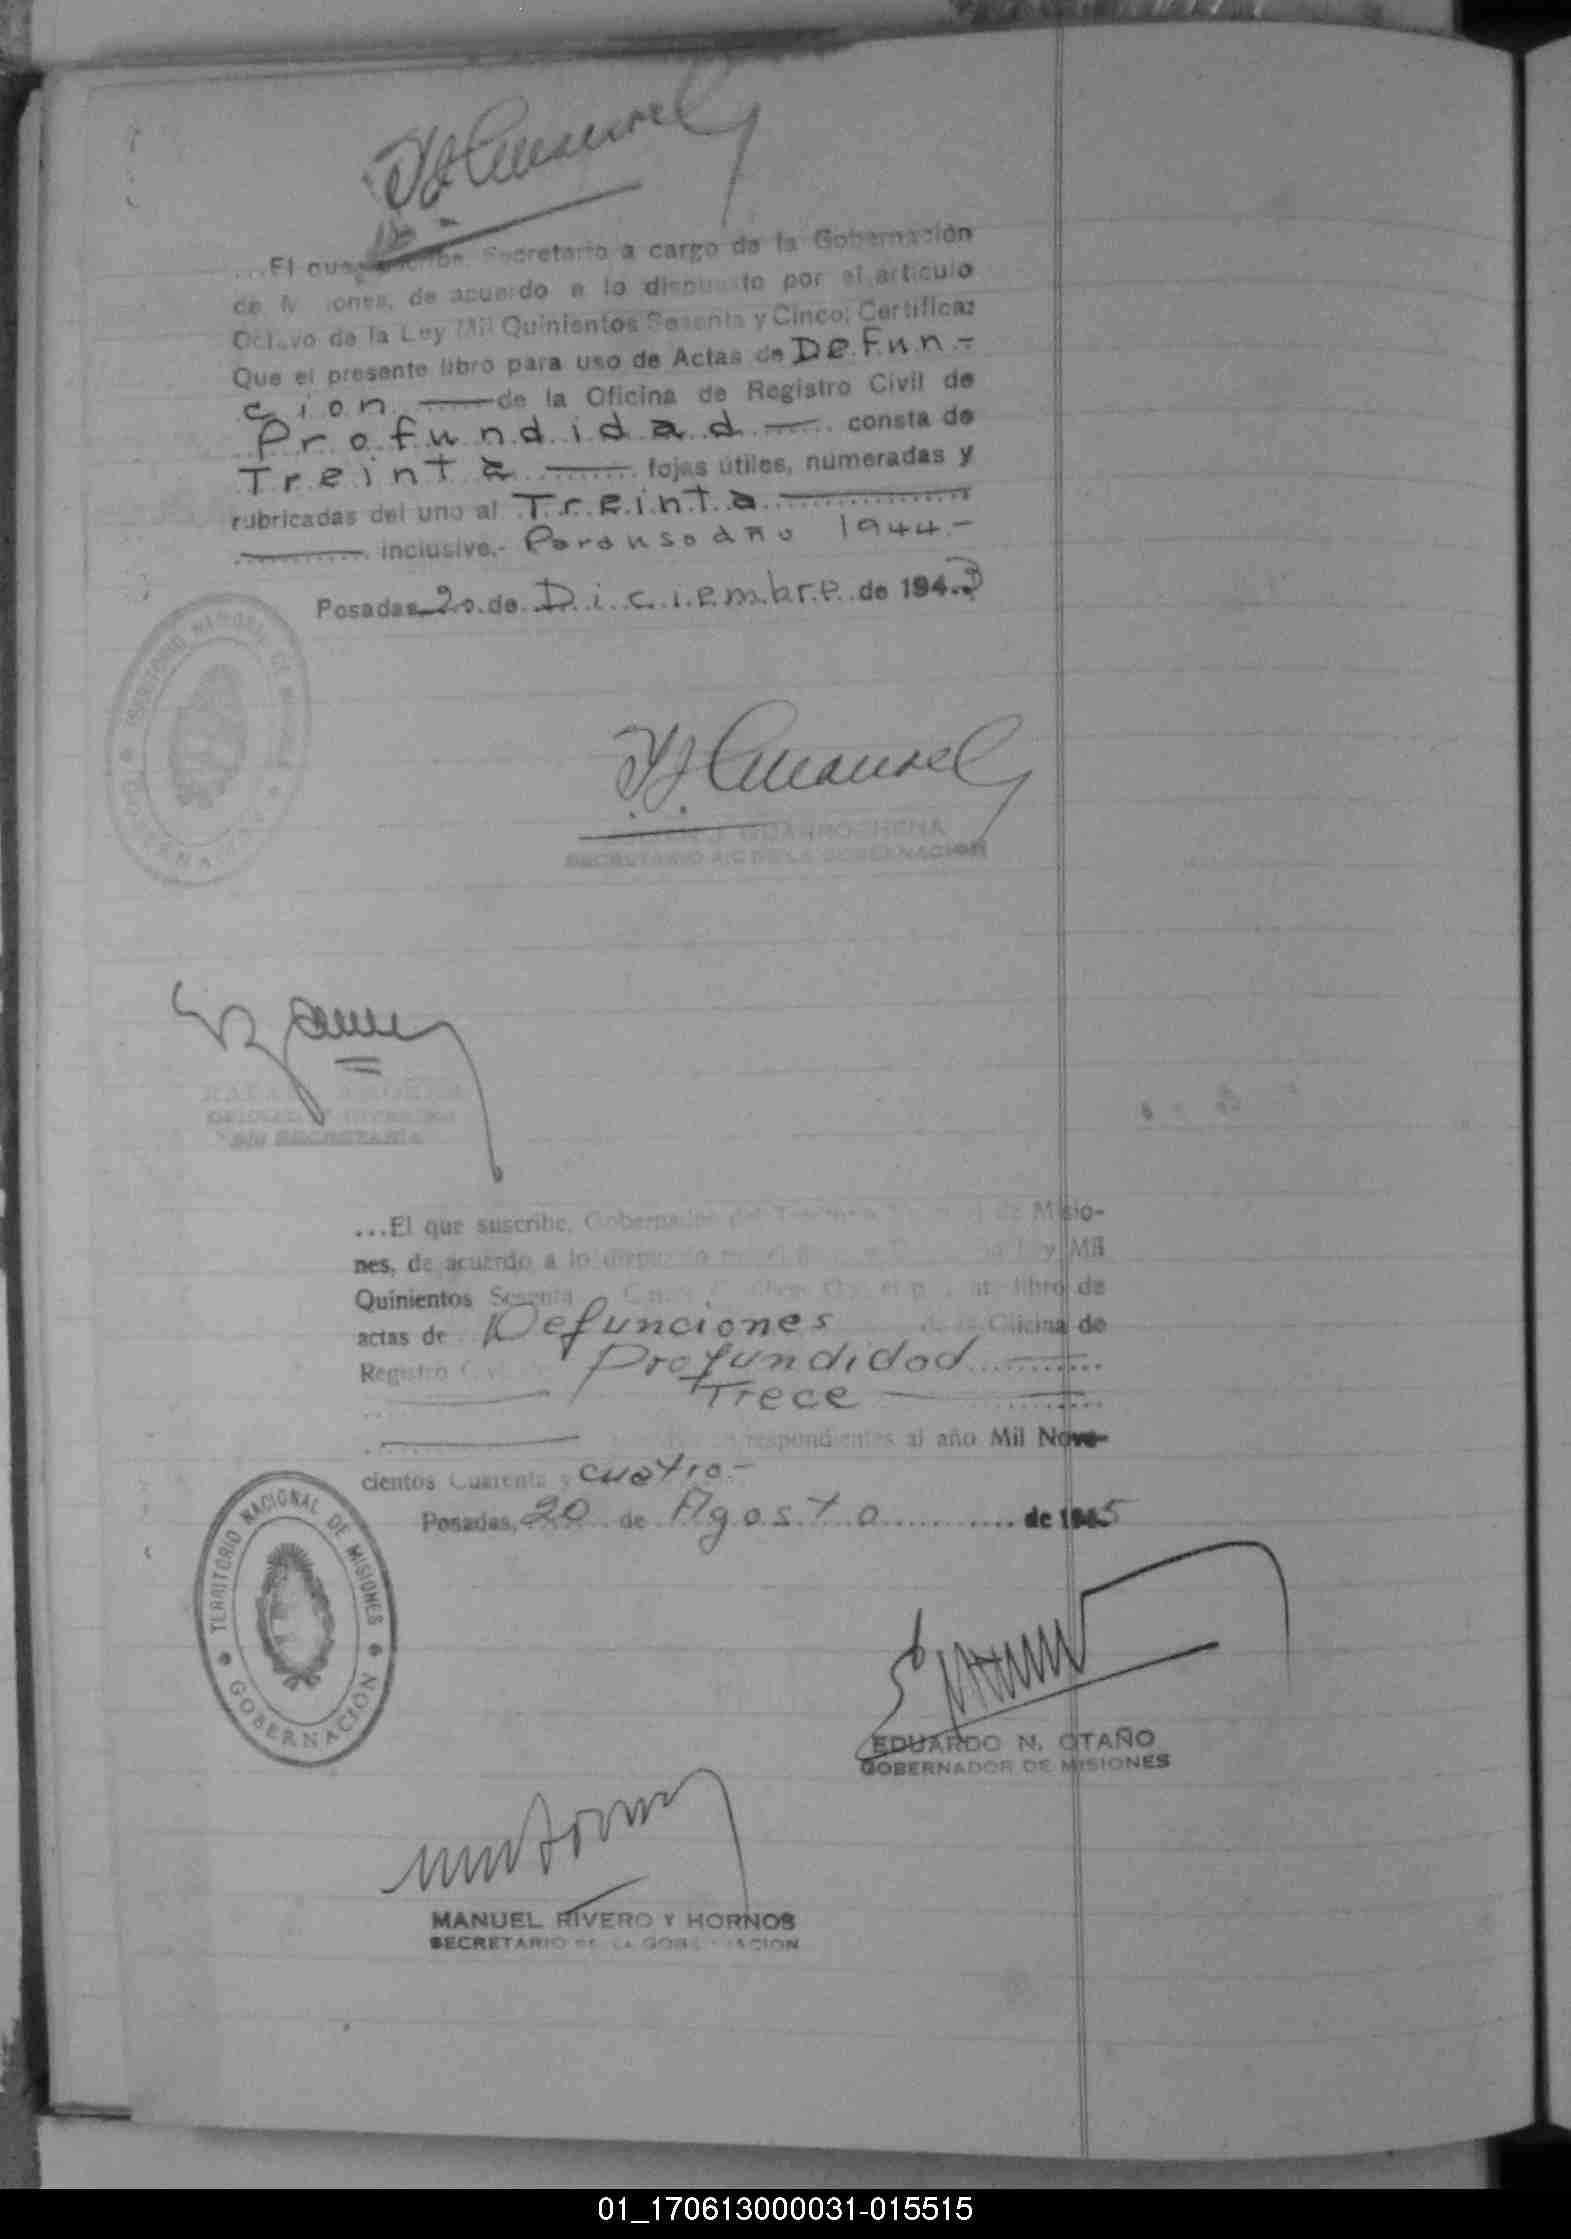 ...El que suscribe, Secretario a cargo de la Gobernación
de Misiones, de acuerdo a lo dispuesto por el artículo
Octavo de la Ley Mil Quinientos Sesenta y Cinco; Certifica:
Que el presente libro para uso de Actas de Defun-
cion de la Oficina de Registro Civil de
Profundidad consta de
Treinta fojas útiles, numeradas y
rubricadas del uno al Treinta
inclusive.- Para uso año 1944.-
Posadas, 20 de Diciembre de 1943
TERRITORIO NACIONAL DE MISIONES
GOBERNACION
J. GUARROCHENA
SECRETARIO A/C DE LA GOBERNACION
EN SECRETARIA
...El que suscribe, Gobernador del Territorio de Misio-
nes, de acuerdo a lo dispuesto Ley Mil
Quinientos Sesenta libro de
actas de Defunciones de la Oficina de
Registro Civil Profundidad
Trece
correspondientes al año Mil Nove-
cientos Cuarenta y cuatro.-
Posadas, 20 de Agosto de 1945
TERRITORIO NACIONAL DE MISIONES
GOBERNACIÓN
EDUARDO N. OTAÑO
GOBERNADOR DE MISIONES
MANUEL RIVERO Y HORNOS
SECRETARIO DE LA GOBERNACION
01_170613000031-015515